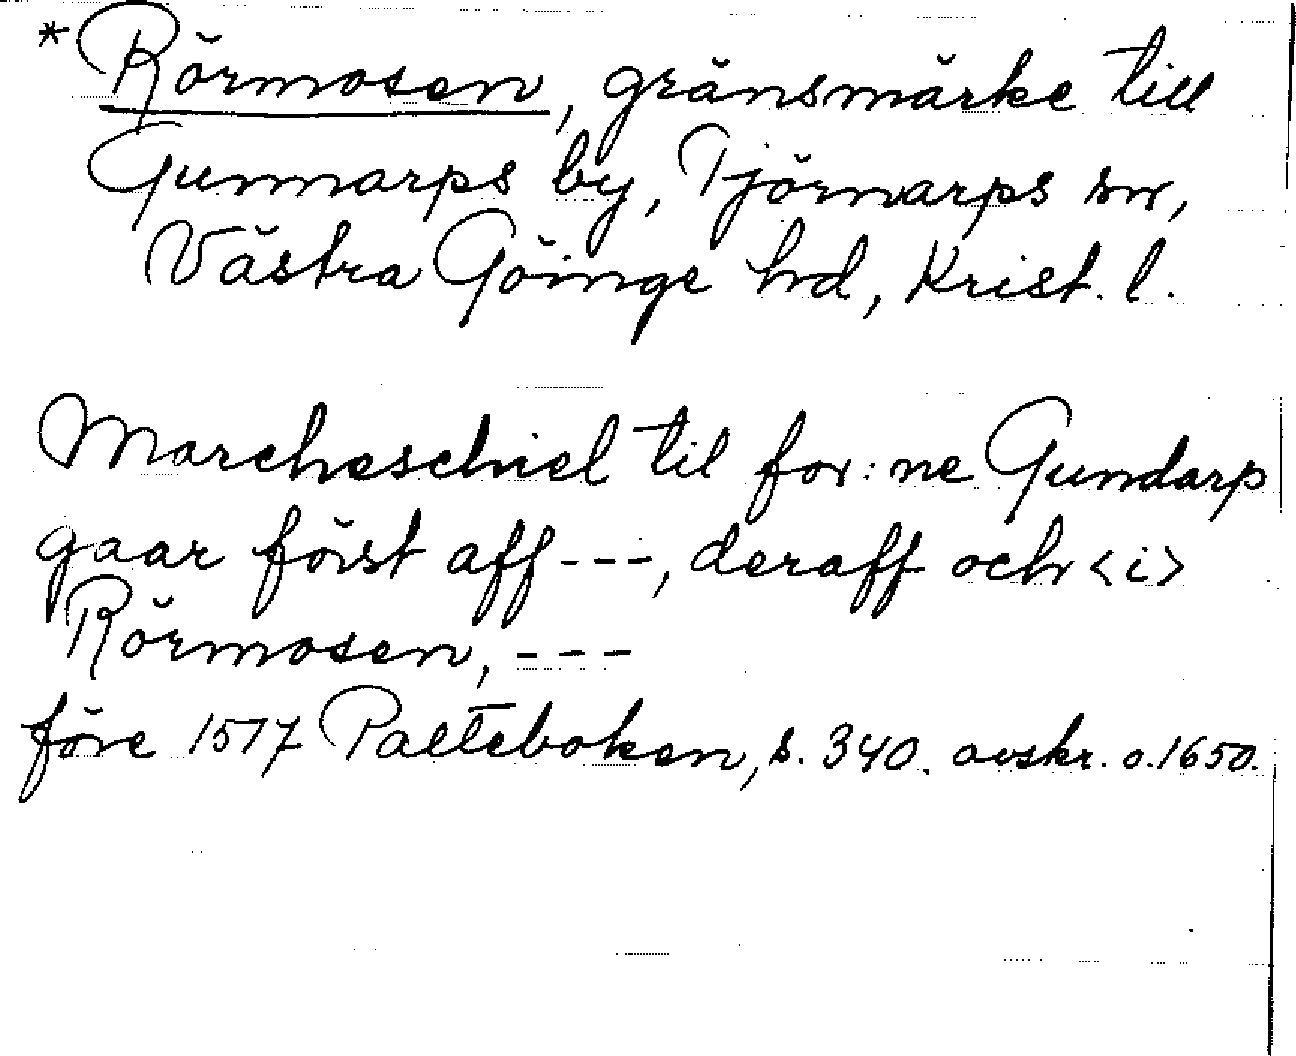 *Rörmosen, gränsmärke till
Gunnarps by, Tjörnarps sn,
Västra Göinge hd, Krist. l.
Marcheschiel til for:ne Gundarp
gaar först aff ---, deraff och <i>
Rörmosen, ---
före 1517 Palteboken, s. 340. avskr. o. 1650.